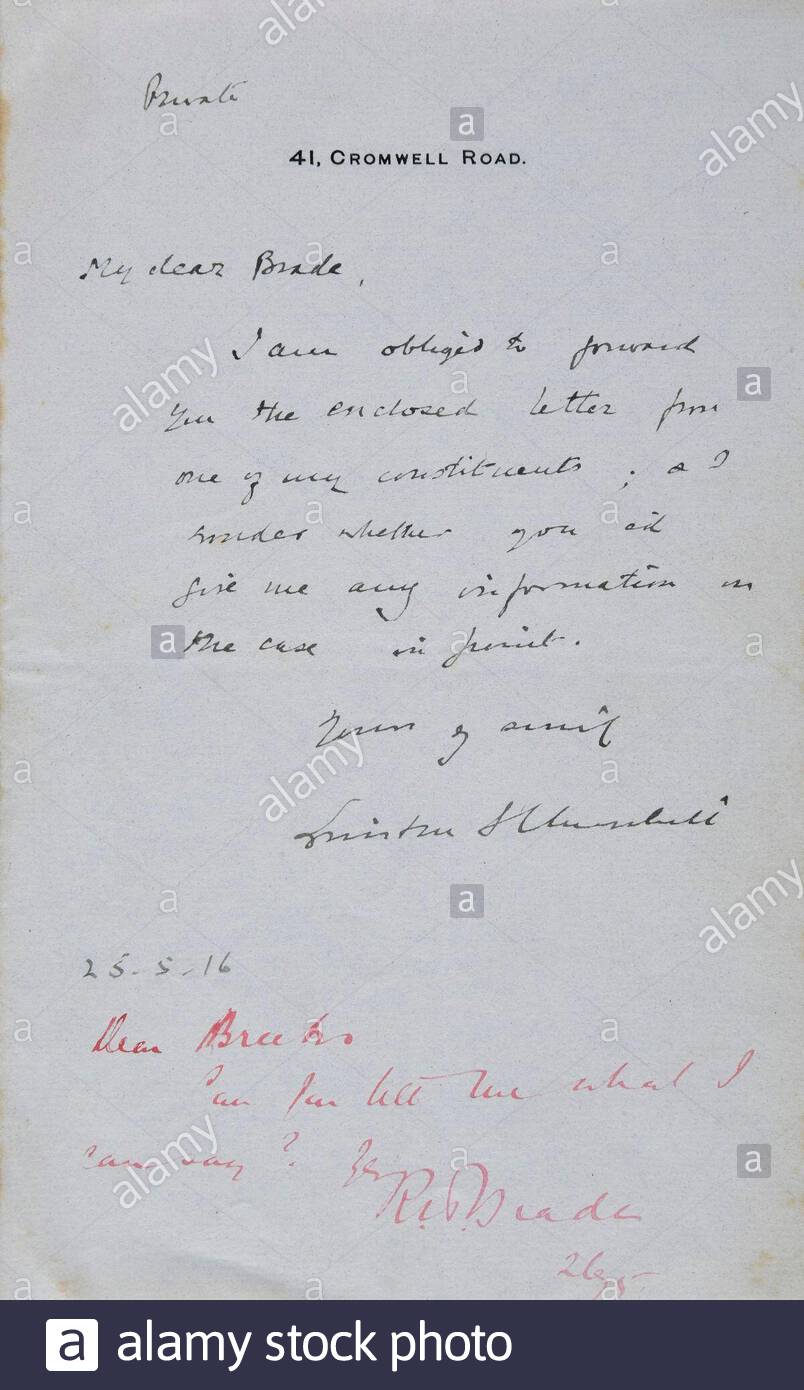 Private
41, CROMWELL ROAD.
My dear Brade,
I am obliged to forward
you the enclosed letter from
one of my constituents; & I
wonder whether you cd
give me any information on
the case in point.
Yours
Winston S Churchill
25-5-16
Dear
Can you tell me what I
can say?
R.H.Brade
26/5
alamy
alamy
alamy
alamy
alamy
alamy
a alamy stock photo